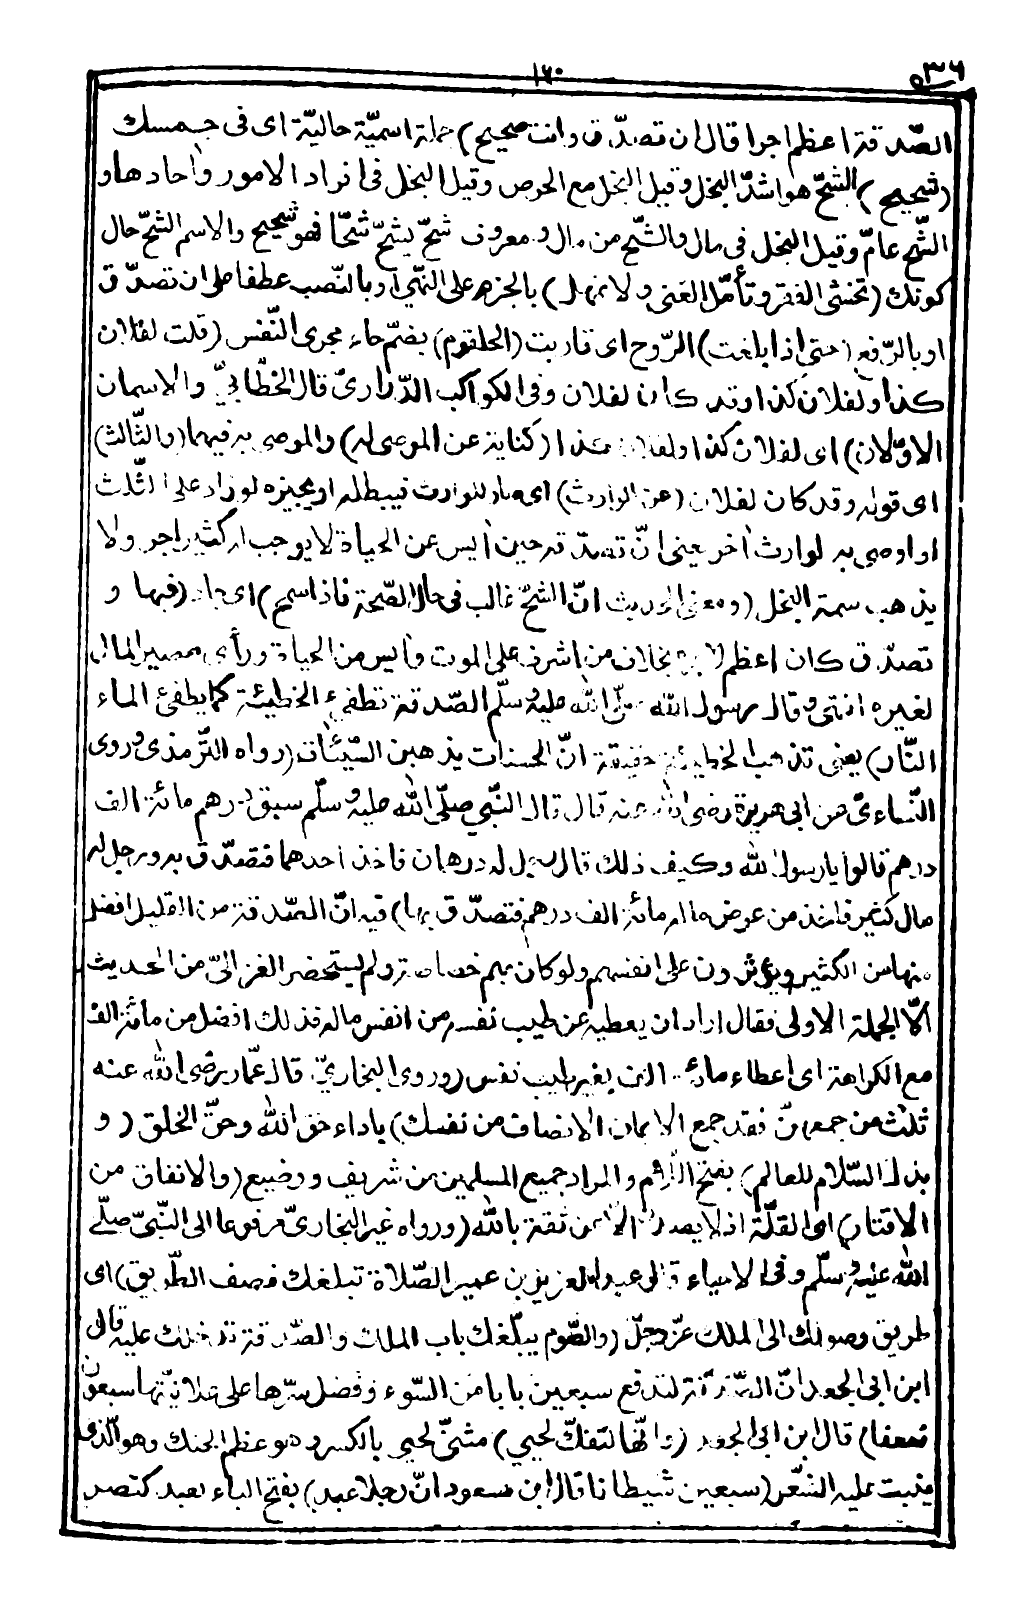 ٥٣٦ ١٦٠
الصّدقة اعظم اجرا قال ان تصدّق وانت صحيح) جملة اسميّة حاليّة اى فى جسمك
(شحيح) الشحّ هو اشدّ البخل وقيل البخل مع الحرص وقيل البخل فى افراد الامور واحادها و
الشّح عامّ وقيل البخل فى مال والشّح من مال و معروف شحّ يشحّ شحّا فهو شحيح والاسم الشحّ حال
كونك (تخشى الفقر وتأمّل الغنى ولا تمهل) بالجزم على النهى او بالنّصب عطفا على ان تصدّق
او بالرّفع (حتى اذا بلغت) الرّوح اى قاربت (الحلقوم) بضمّ حاء مجرى النّفس (قلت لفلان
كذا ولفلان كذا وقد كان لفلان وفى الكواكب الدّرارىّ قال الخطّابىّ والاسمان
الاوّلان) اى لفلان كذا ولفلان كذا (كناية عن الموصى له) والموصى به فيهما (والثّالث)
اى قوله وقد كان لفلان (عن الوارث) اى صار للوارث فيبطله او يجيزه لو زاد على الثّلث
او اوصى به لوارث اٰخر يعنى انّ تصدّقه حين اٰيس عن الحياة لا يوجب له كثير اجر ولا
يذهب سمة البخل (ومعنى الحديث انّ الشحّ غالب فى حال الصّحة فاذا سمح) اى جاد (فيها و
تصدّق كان اعظم لاجره بخلاف من اشرف على الموت واٰيس من الحياة ورأى مصير المال
لغيره انتهى وقال رسول الله صلّى الله عليه وسلّم الصّدقة تطفئ الخطيئة كما يطفئ الماء
النّار) يعنى تذهب الخطيئة حقيقة انّ الحسنات يذهبن السّيّئات (رواه التّرمذى وروى
النّساءى عن ابى هريرة رضى الله عنه قال قال النّبى صلّى الله عليه وسلّم سبق درهم مائة الف
درهم قالوا يا رسول الله وكيف ذلك قال رجل له درهمان فاخذ احدهما فتصدّق به ورجل له
مال كثير فاخذ من عرض ماله مائة الف درهم فتصدّق بها) فيه انّ الصّدقة من القليل افضل
منها من الكثير ويؤثرون على انفسهم ولو كان بهم خصاصة ولم يستحضر الغزالىّ من الحديث
الّا الجملة الاولى فقال اراد ان يعطيه عن طيب نفسه من انفس ماله فذلك افضل من مائة الف
مع الكراهة اى اعطاء مائة الف بغير طيب نفس (وروى البخارىّ قال عمّار رضى الله عنه
ثلث من جمعهنّ فقد جمع الايمان الانصاف من نفسك) باداء حق الله وحقّ الخلق (و
بذل السّلام للعالم) بفتح اللّام والمراد جميع المسلمين من شريف ووضيع (والانفاق من
الاقتار) اى القلّة اذ لا يصدر الّا من ثقة بالله (ورواه غير البخارىّ مرفوعا الى النّبىّ صلّى
الله عليه وسلّم وفى الاحياء قال عبد العزيز بن عمير الصّلاة تبلغك نصف الطّريق) اى
طريق وصولك الى الملك عزّ وجلّ (والصّوم يبلّغك باب الملك والصّدقة تدخلك عليه قال
ابن ابى الجعد انّ الصّدقة لتدفع سبعين بابا من السّوء وفضل سرّها على علانيّتها سبعون
ضعفا) قال ابن ابى الجعد (وانّها لتفكّ لحيى) مثنىّ لحى بالكسر وهو عظم الحنك وهو الّذى
ينبت عليه الشّعر (سبعين شيطانا قال ابن مسعود انّ رجلا عبد) بفتح الباء يعبد كنصر